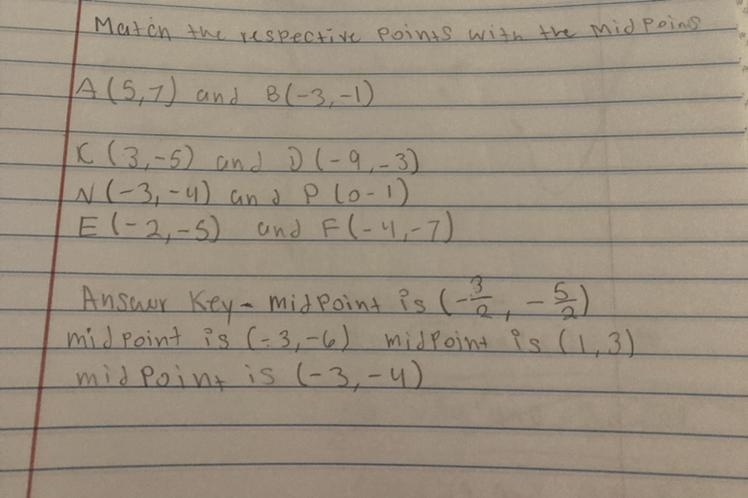 Match the respective points with the midpoint
A(5,7) and B(-3,-1)
K(3,-5) and D(-9,-3)
N(-3,-4) and P(0-1)
E(-2,-5) and F(-4,-7)
Answer Key- midpoint is (-3/2, -5/2)
midpoint is (-3,-6) midpoint is (1,3)
midpoint is (-3,-4)